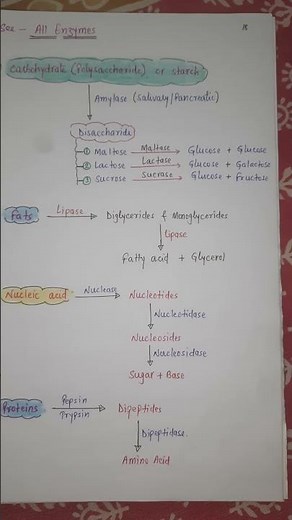 See - All Enzymes
Carbohydrate (Polysaccharide) or starch
Amylase (Salivary/Pancreatic)
Disaccharide
① Maltose Maltase Glucose + Glucose
② Lactose Lactase Glucose + Galactose
③ Sucrose Sucrase Glucose + Fructose
Fats Lipase Diglycerides & Monoglycerides
Lipase
Fatty acid + Glycerol
Nucleic acid Nuclease Nucleotides
Nucleotidase
Nucleosides
Nucleosidase
Sugar + Base
Proteins Pepsin Trypsin Dipeptides
Dipeptidase
Amino Acid